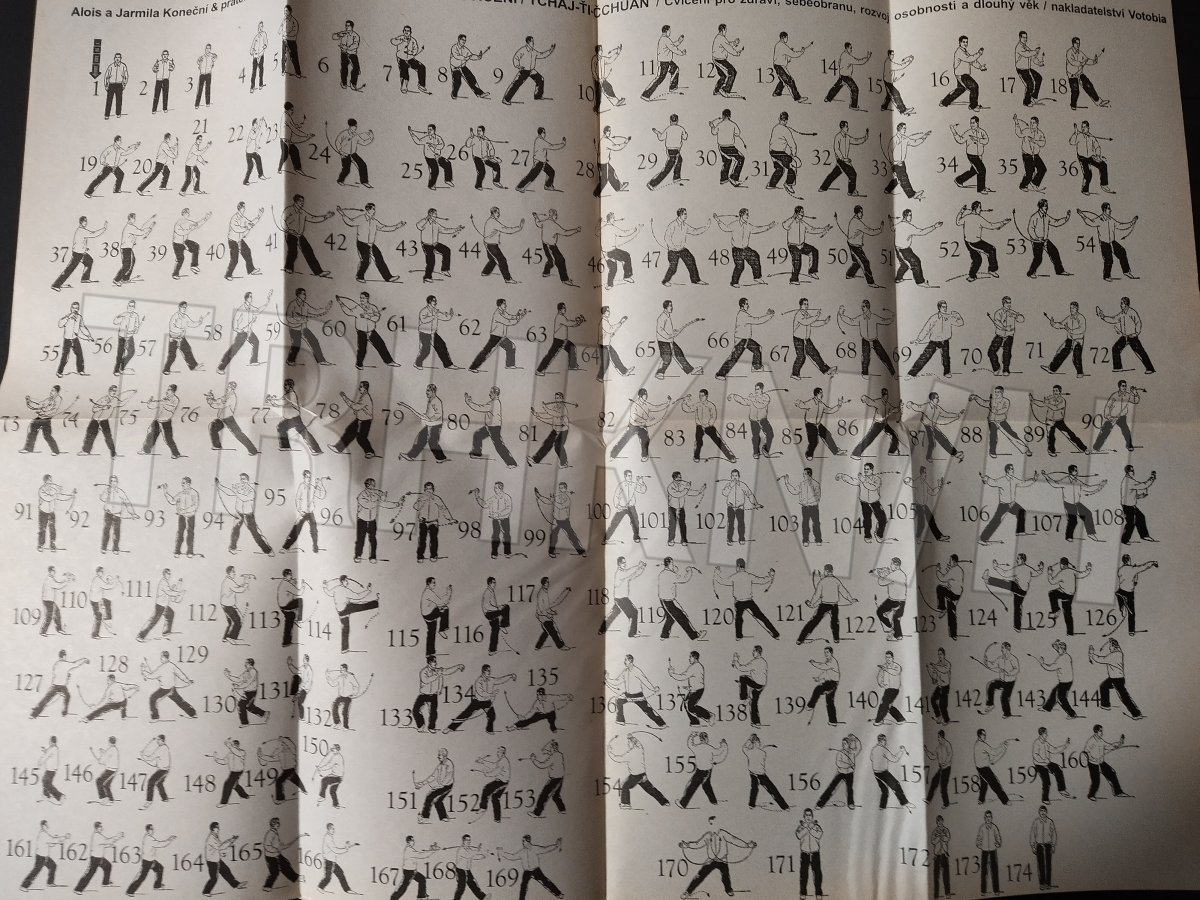 Alois a Jarmila Koneční & TCHAJ-ŤI-ČCHUAN / Cvičení pro zdraví, sebeobranu, rozvoj osobnosti a dlouhý věk / nakladatelství Votobia
1 2 3 4 5 6 7 8 9 10 11 12 13 14 15 16 17 18
19 20 21 22 23 24 25 26 27 28 29 30 31 32 33 34 35 36
37 38 39 40 41 42 43 44 45 46 47 48 49 50 51 52 53 54
55 56 57 58 59 60 61 62 63 64 65 66 67 68 69 70 71 72
73 74 75 76 77 78 79 80 81 82 83 84 85 86 87 88 89 90
91 92 93 94 95 96 97 98 99 100 101 102 103 104 105 106 107 108
109 110 111 112 113 114 115 116 117 118 119 120 121 122 123 124 125 126
127 128 129 130 131 132 133 134 135 136 137 138 139 140 141 142 143 144
145 146 147 148 149 150 151 152 153 154 155 156 157 158 159 160
161 162 163 164 165 166 167 168 169 170 171 172 173 174
TRHKNIH